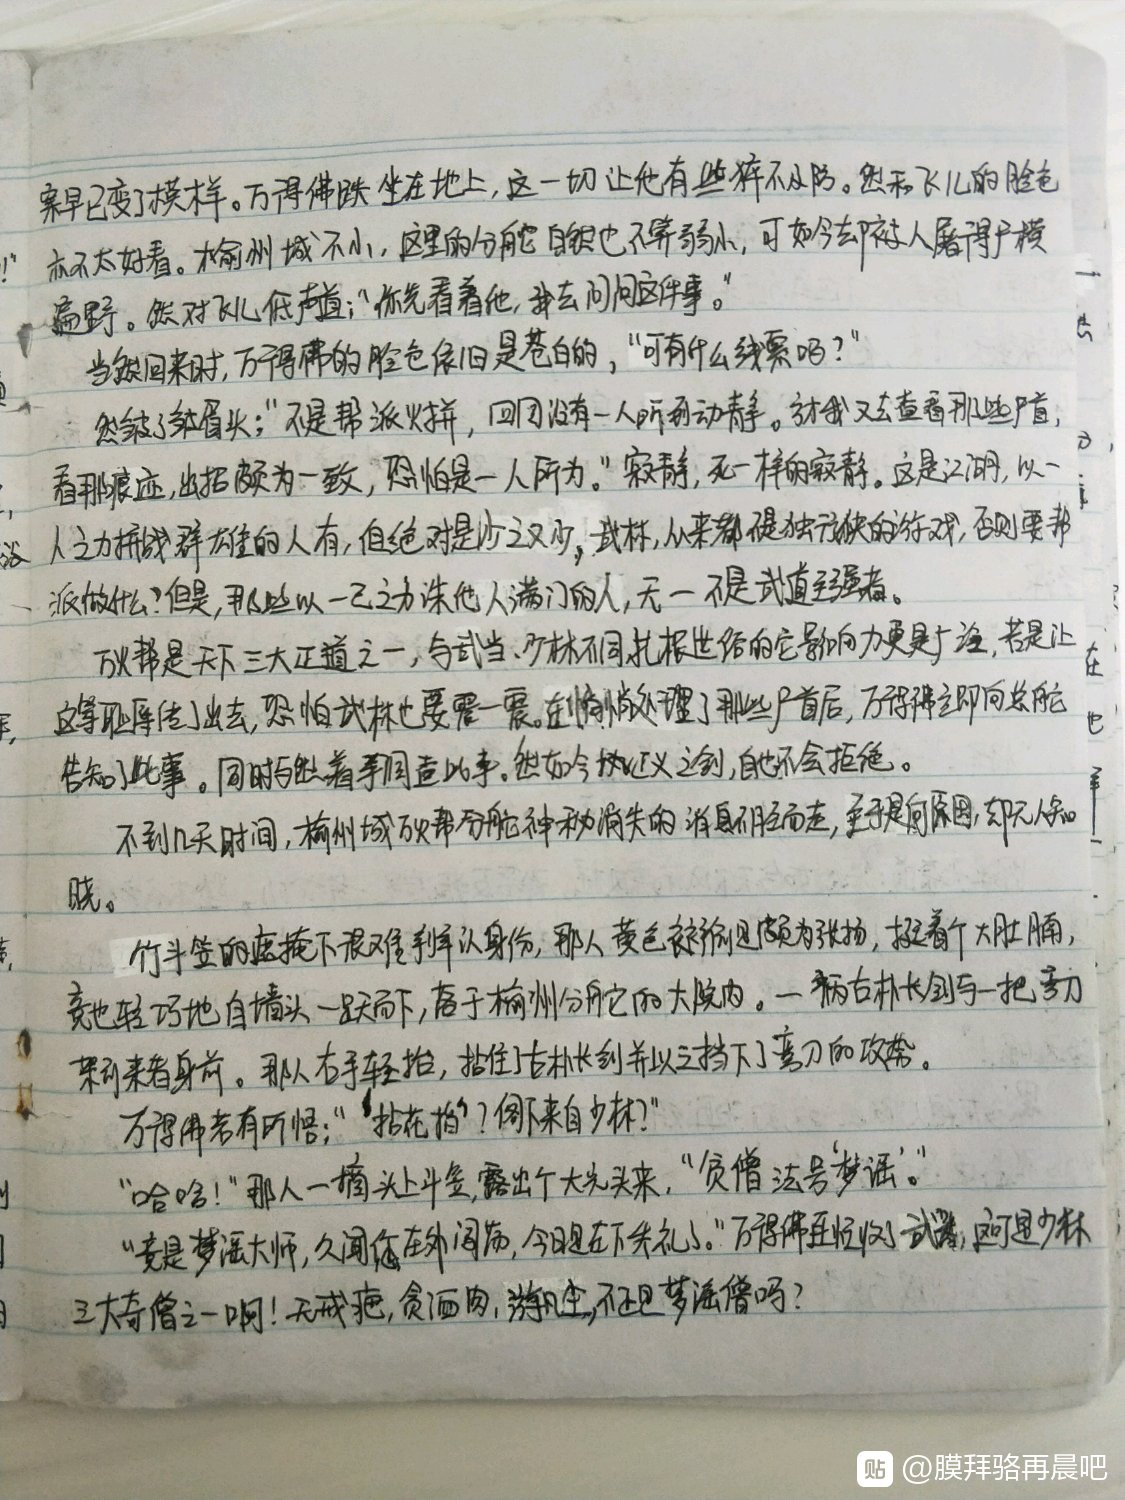 案早已变了模样。万得佛跌坐在地上，这一切让他有些猝不及防。然和飞儿的脸色
亦不太好看。榆州城不小，这里的分舵自然也不算弱小，可如今却被人屠得尸横
遍野。然对飞儿低声道：“你先看着他，我去问问这件事。”
当然回来时，万得佛的脸色依旧是苍白的，“可有什么线索吗？”
然皱了皱眉头：“不是帮派火拼，四周没有一人听到动静。方才我又去查看那些尸首，
看那痕迹，出招颇为一致，恐怕是一人所为。”寂静，死一样的寂静。这是江湖，以一
人之力拼战群雄的人有，但绝对是少之又少，武林，从来都不是独行侠的游戏，否则要帮
派做什么？但是，那些以一己之力诛他人满门的人，无一不是武道至强者。
万火帮是天下三大正道之一，与武当、少林不同，扎根世俗的它影响力更是广泛，若是让
这等耻辱传了出去，恐怕武林也要震一震。在悄悄处理了那些尸首后，万得佛立即向总舵
告知了此事。同时与然着手调查此事。然如今执正义之剑，自也不会拒绝。
不到几天时间，榆州城万火帮分舵神秘消失的消息不胫而走，至于是何原因，却无人知
晓。
竹斗笠的遮掩下很难判断身份，那人黄色袈裟倒是颇为张扬，挺着个大肚腩，
竟也轻巧地自墙头一跃而下，落于榆州分舵的大院内。一柄古朴长剑与一把弯刀
架到来者身前。那人右手轻抬，拈住了古朴长剑并以之挡下了弯刀的攻势。
万得佛若有所悟：“‘拈花指’？阁下来自少林？”
“哈哈！”那人一摘头上斗笠，露出个大光头来，“贫僧法号‘梦谣’。”
“竟是梦谣大师，久闻您在外闯荡，今日是在下失礼了。”万得佛连忙收了武器，这可是少林
三大奇僧之一啊！无戒疤，贪酒肉，游凡尘，不正是梦谣僧吗？
贴 @膜拜骆再晨吧